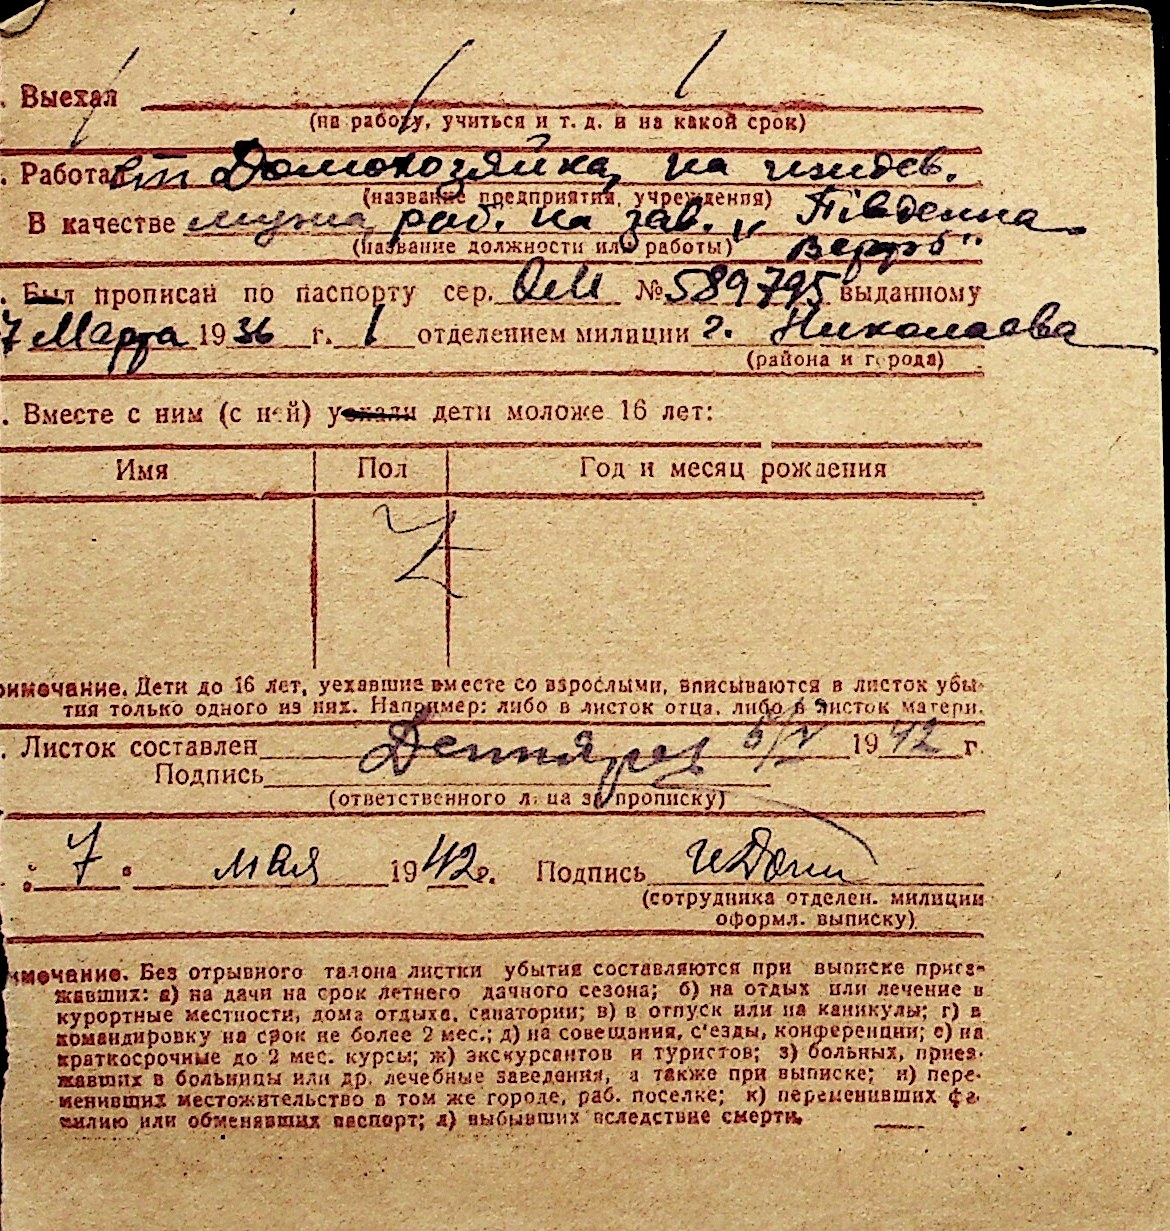 . Выехал
(на работу, учиться и т. д. и на какой срок)
. Работает Домохозяйка, на иждев.
(название предприятия, учреждения)
В качестве мужа, раб. на зав. „Південна
(название должности или работы) Верфь"
. Был прописан по паспорту сер. № 589795 выданному
7 Марта 1936 г. 1 отделением милиции г. Николаева
(района и города)
. Вместе с ним (с ней) уехали дети моложе 16 лет:
Имя Пол Год и месяц рождения
имечание. Дети до 16 лет, уехавшие вместе со взрослыми, вписываются в листок убы-
тия только одного из них. Например: либо в листок отца, либо в листок матери.
. Листок составлен 5/V 1942 г.
Подпись
(ответственного лица за прописку)
7 мая 1942г. Подпись
(сотрудника отделен. милиции
оформл. выписку)
имечание. Без отрывного талона листки убытия составляются при выписке приез-
жавших: а) на дачи на срок летнего дачного сезона; б) на отдых или лечение в
курортные местности, дома отдыха, санатории; в) в отпуск или на каникулы; г) в
командировку на срок не более 2 мес.; д) на совещания, с'езды, конференции; е) на
краткосрочные до 2 мес. курсы; ж) экскурсантов и туристов; з) больных, приез-
жавших в больницы или др. лечебные заведения, а также при выписке; и) пере-
менивших местожительство в том же городе, раб. поселке; к) переменивших фа-
милию или обменявших паспорт; л) выбывших вследствие смерти.